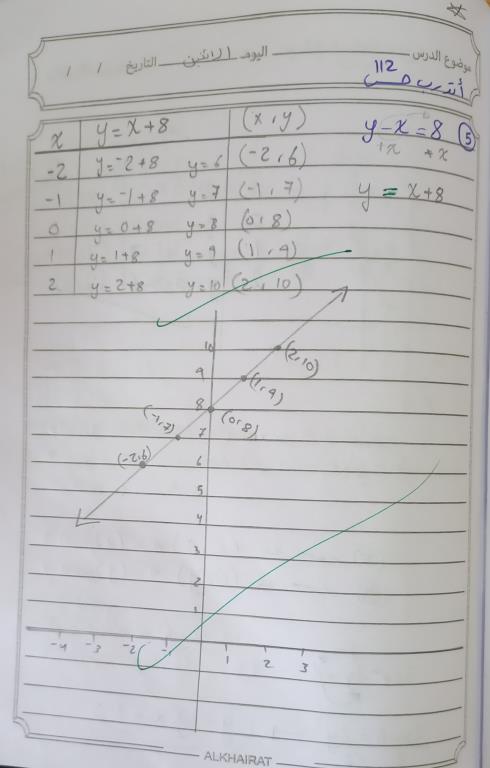 موضوع الدرس اليوم الاثنين التاريخ / /
112
أتدرب ص
⑤ y-x=8
+x +x
y = x+8
x y=x+8 (x,y)
-2 y=-2+8 y=6 (-2,6)
-1 y=-1+8 y=7 (-1,7)
0 y=0+8 y=8 (0,8)
1 y=1+8 y=9 (1,9)
2 y=2+8 y=10 (2,10)
10 (2,10)
9 (1,9)
8 (0,8)
(-1,7) 7
(-2,6) 6
5
4
3
2
1
-4 -3 -2 -1 1 2 3
ALKHAIRAT